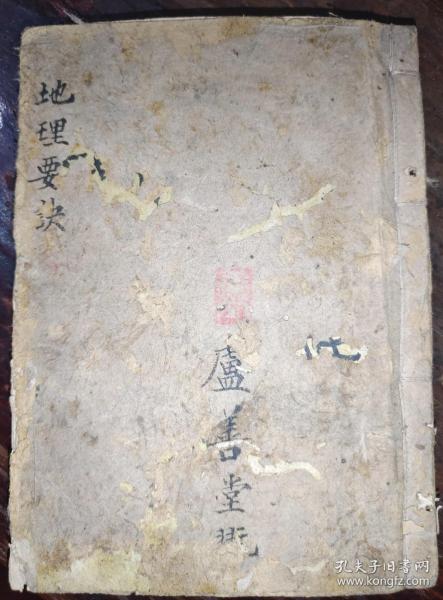 地理要决
廬善堂
孔夫子旧书网
www.kongfz.com